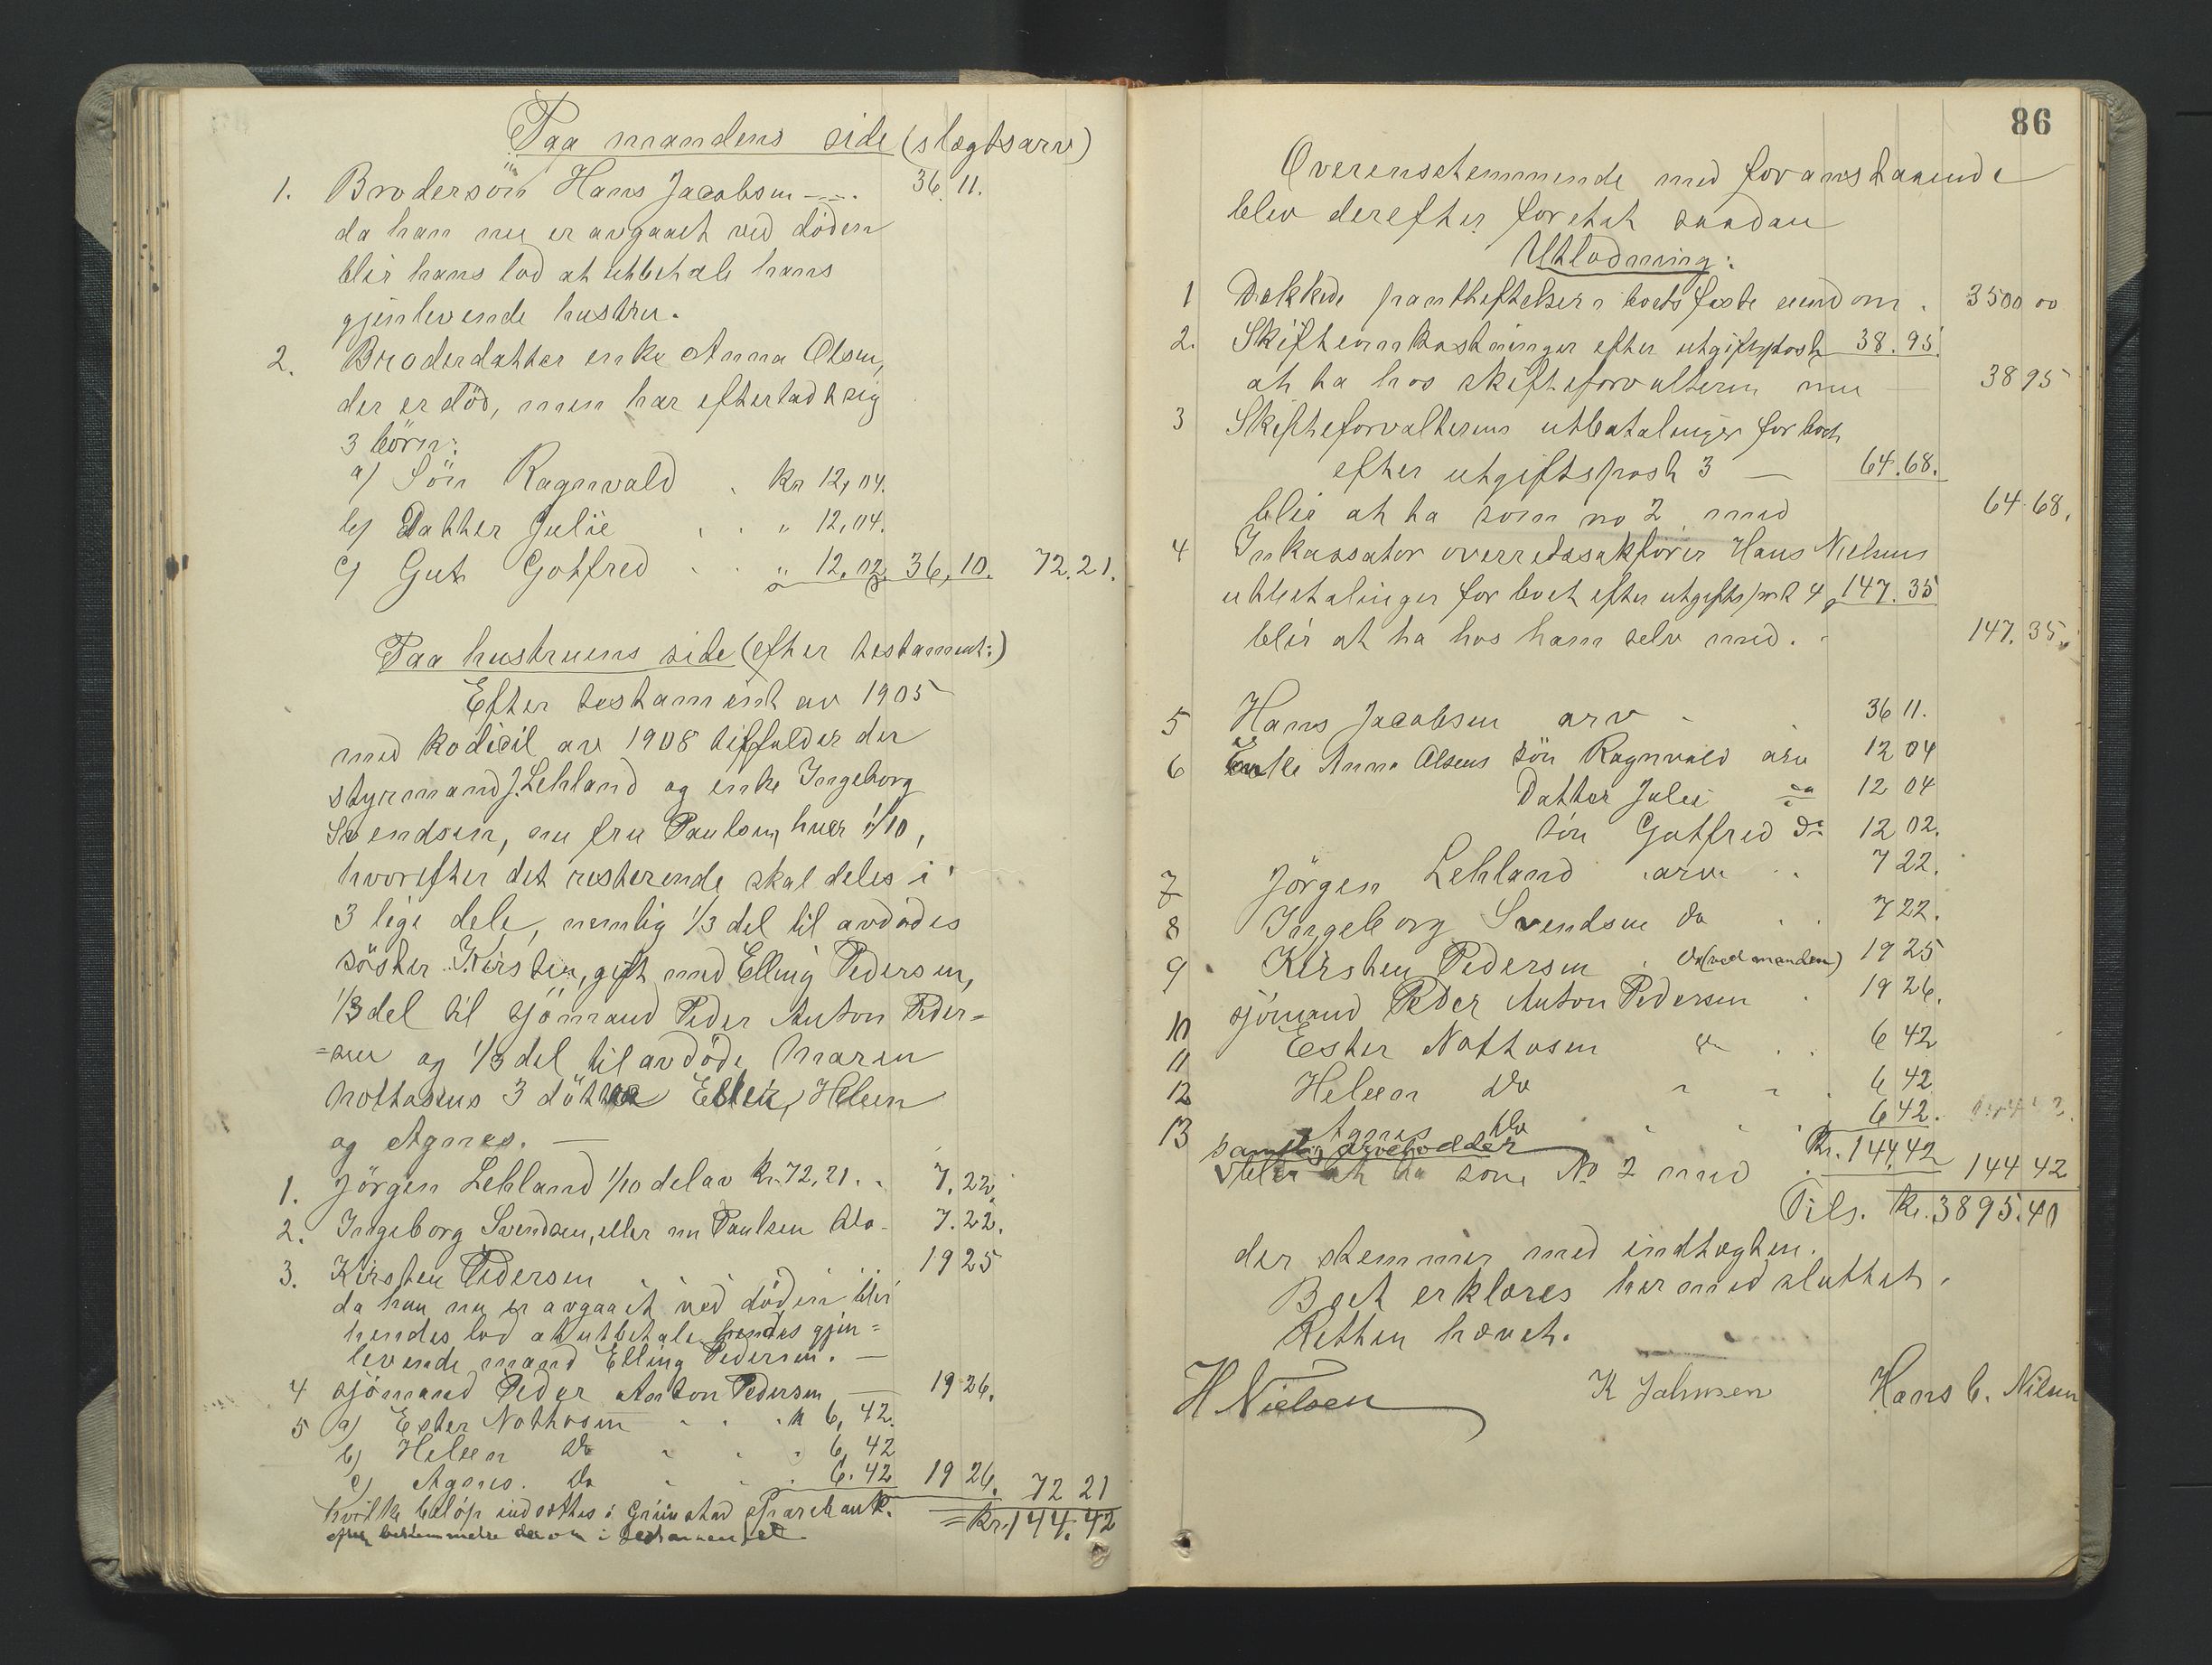 Paa mandens side (slægtsarv)
1. Brodersön Hans Jacobsen 36.11.
da han nu er avgaaet ved döden
blir hans lod at utbetale hans
gjenlevende hustru.
2. Broderdatter enke Anna Olsen,
der er död, men har efterladt sig
3 börn:
a) Sön Ragnvald . Kr 12,04.
b) Datter Julie . . " 12,04.
c) Gut Gotfred . . " 12,02. 36,10. 72.21.
Paa hustruens side (efter testament:)
Efter testament av 1905
med kodicil av 1908 tilfalder der
styrmand J. Lehland og enke Ingeborg
Svendsen, nu fru Paulsen, hver 1/10,
hvorefter det resterende skal deles i
3 lige dele, nemlig 1/3 del til avdödes
söster Kirsten, gift med Elling Pedersen,
1/3 del til sjömand Peder Anton Peder=
=sen og 1/3 del til avdöde Maren
Nottosens 3 dötre Ester, Heleen
og Agnes. —
1. Jörgen Lehland 1/10 del av Kr. 72,21. . 7.22.
2. Ingeborg Svendsen, eller nu Paulsen do. 7.22.
3. Kirsten Pedersen . . . . 19 25
da hun nu er avgaaet ved döden blir
hendes lod at utbetale hendes gjen=
levende mand Elling Pedersen. —
4 sjömand Peder Anton Pedersen — 19 26.
5 a) Ester Nottosen . . . 6, 42.
b) Heleen do . . . 6, 42
c) Agnes. do . . . 6. 42 19 26. 72 21
hvilke belöp indsættes i Grimstad Sparebank. = Kr. 144.42
efter bestemmelse derom i testamentet
86
Overensstemmende med foranstaaende
blev derefter foretat saadan
Utlodning:
1 Dækkede pantheftelser i boets faste eiendom . 3500 00
2. Skifteomkostninger efter utgiftspost 38.95.
at ta hos skifteforvalteren med 38 95
3 Skifteforvalterens utbetalinger for boet
efter utgiftspost 3 — 64.68.
blir at ta som no 2 med 64 68.
4 Inkassator overretssakförer Hans Nielsens
utbetalinger for boet efter utgiftspost 4, 147.35
blir at ta hos ham selv med. . 147.35.
5 Hans Jacobsen arv . . 36 11.
6 Enke Anna Olsens sön Ragnvald arv 12 04
Datter Julie do 12 04
sön Gotfred do 12 02.
7 Jörgen Lehland . arv . . 7 22.
8 Ingeborg Svendsen do . . 7 22.
9 Kirsten Pedersen . do (ved manden) 19 25
10 sjömand Peder Anton Pedersen . 19 26.
11 Ester Nottosen do . . 6 42
12 Heleen do . . . 6 42
13 Agnes do . . . 6 42.
samtlige arvelodder Kr. 144,42
blir at ta som No 2 med 144 42
Tils. Kr. 3895.40
der stemmer med indtægten.
Boet erklæres hermed sluttet.
Retten hævet.
H Nielsen K Johnsen Hans C. Nilsen